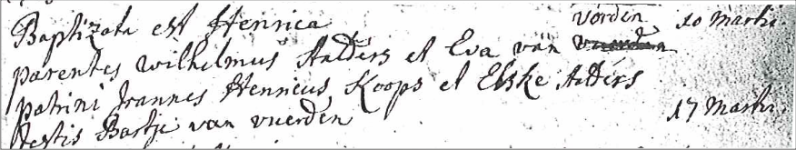 Baptizata est Henrica 10 Martii
parentes Wilhelmus Aalders et Eva van vorden
patrini Joannes Henricus Koops et Elske Alders
testis Bartje van vuerden 17 Martii